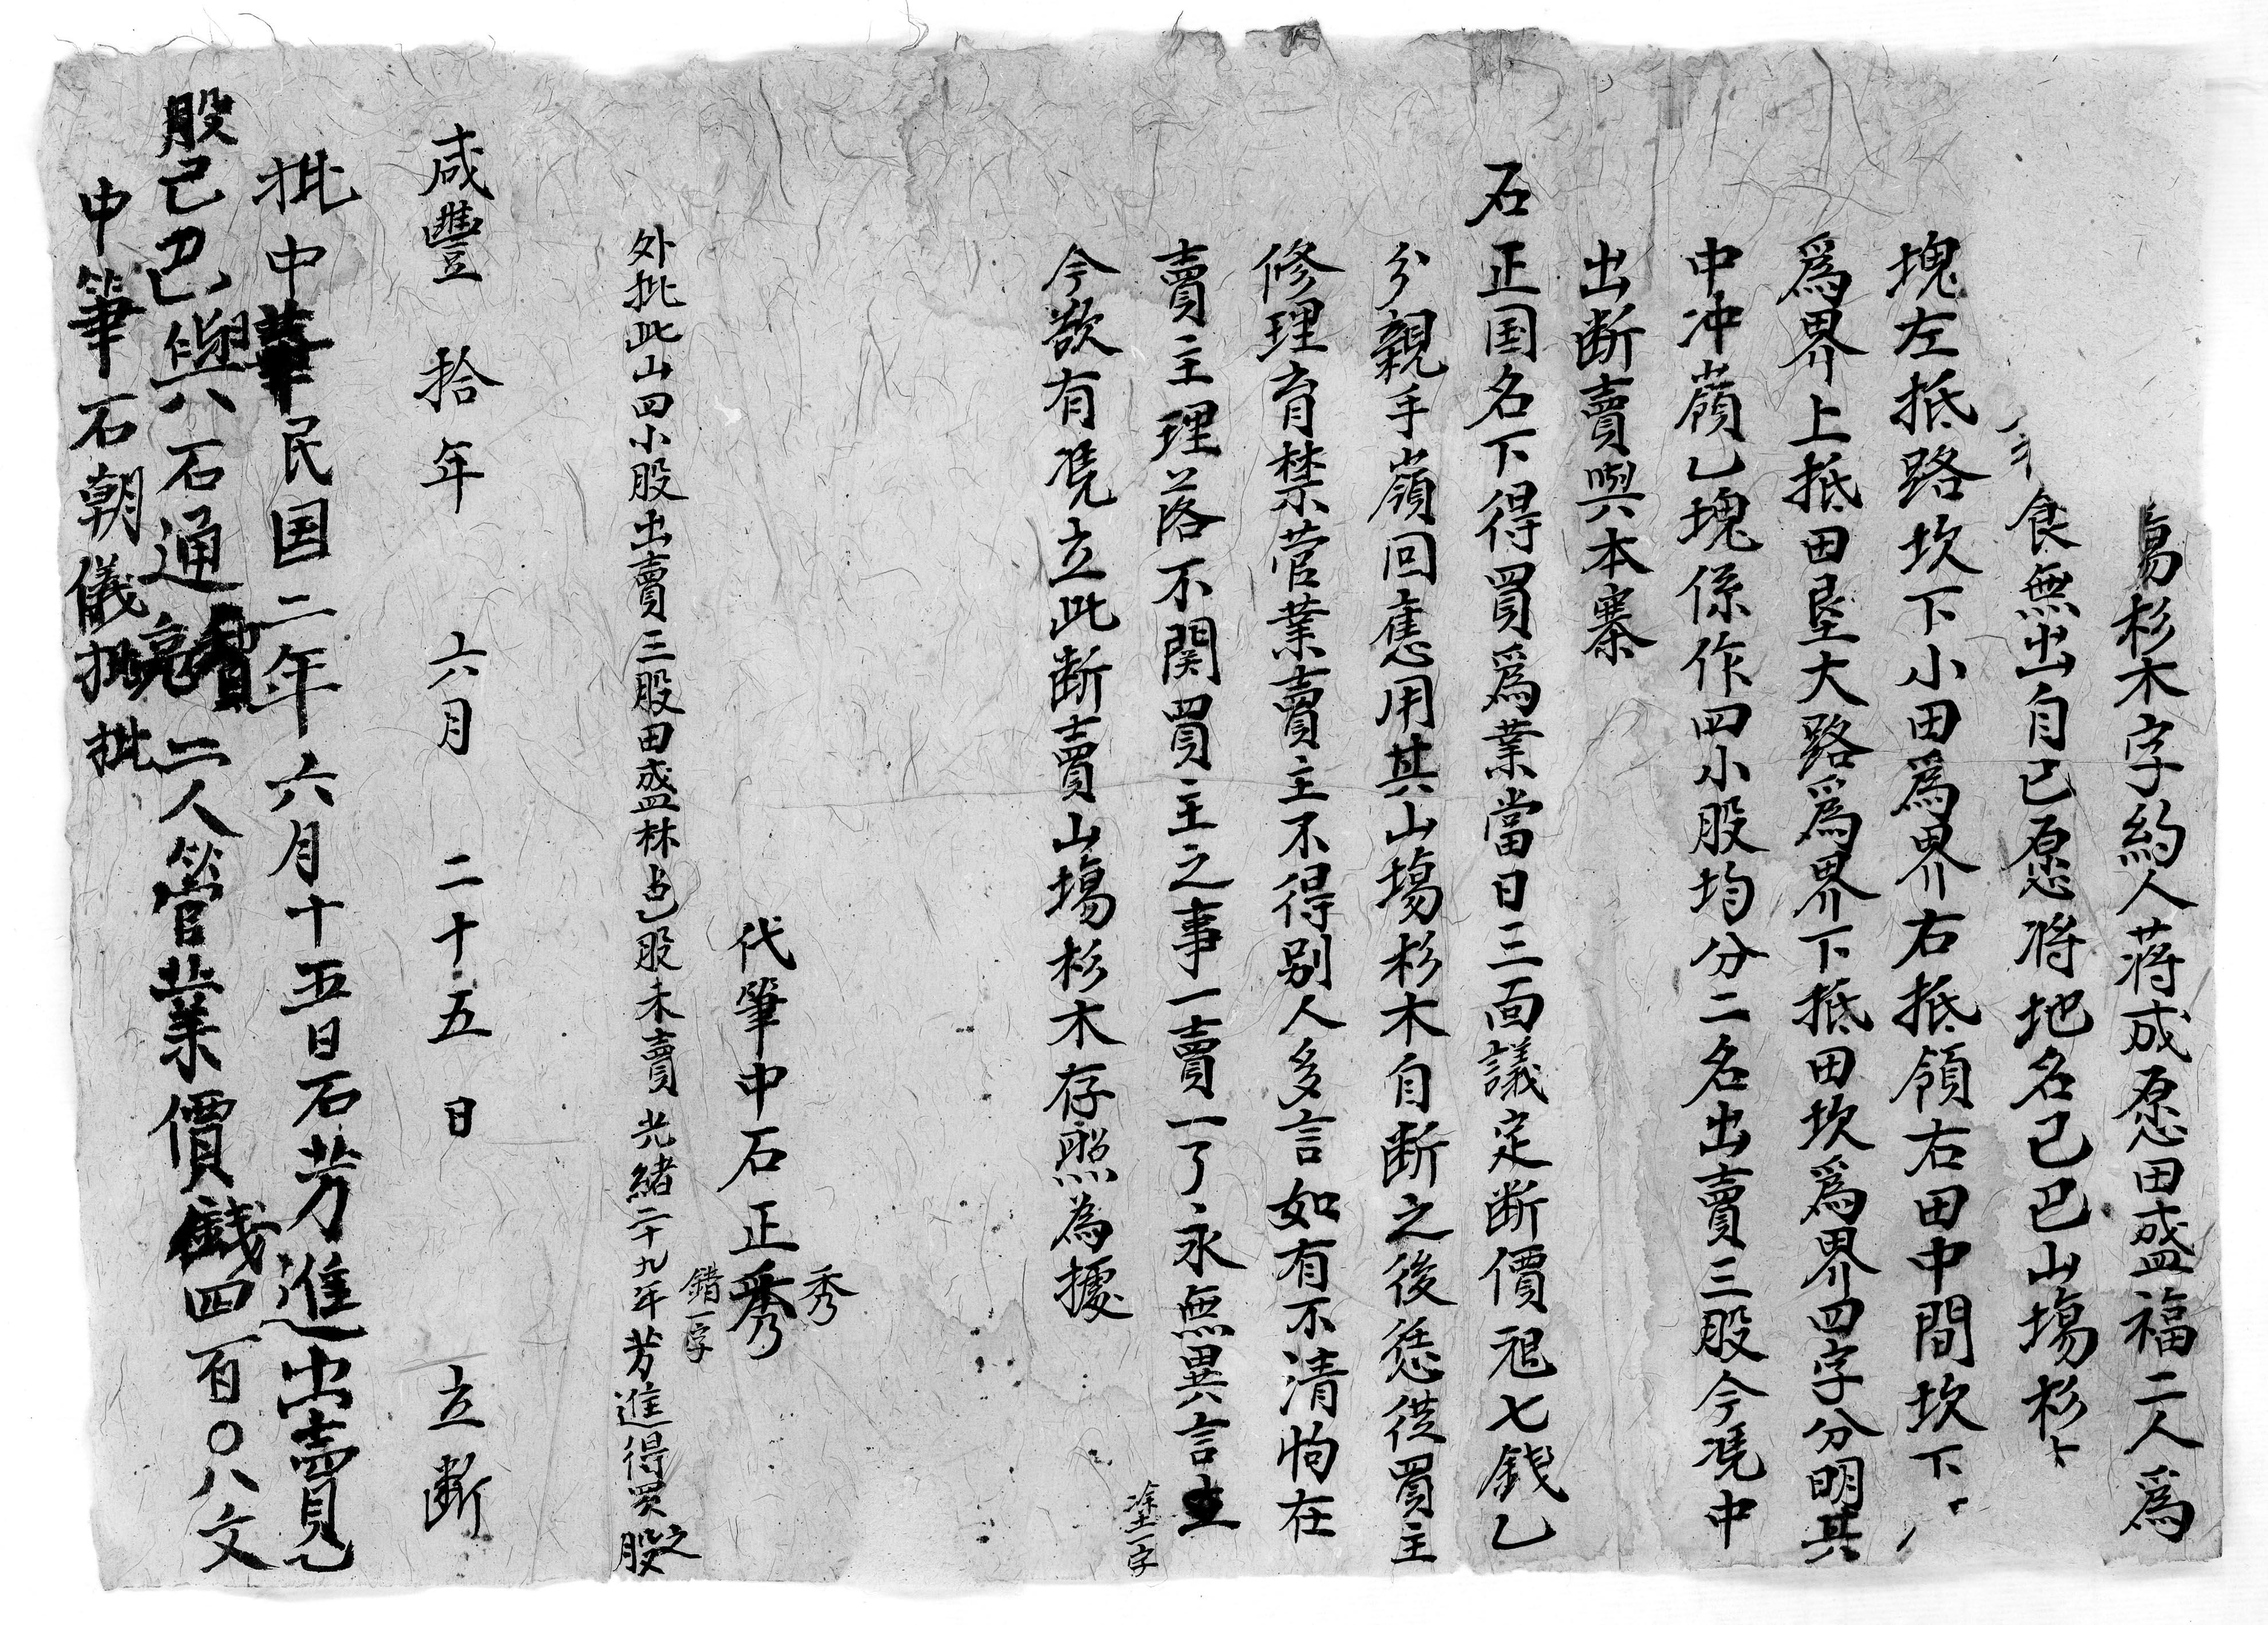 塲杉木字約人蔣成愿田盛福二人爲
食無出自己愿将地名己巴山塲杉
塊左抵路坎下小田爲界右抵領右田中間坎下
爲界上抵田垦大路爲界下抵田坎爲界四字分明其
中冲嶺乙塊係作四小股均分二名出賣三股今凴中
出断賣與本寨
石正国名下得買爲業當日三面議定断價艮七錢乙
分親手嶺回應用其山塲杉木自断之後恁從買主
修理育禁菅業賣主不得别人多言如有不清怐在
賣主理落不関買主之事一賣一了永無異言
塗一字
今欲有凴立此断賣山塲杉木存照為據
代筆中石正秀
秀
錯一字
外批此山四小股出賣三股田盛林占乙股未賣光緒二十九年芳進得買之股
咸豐拾年六月二十五日立断
批中華民国二年六月十五日石芳進出賣乙
股己巴與石通亮二人管業價錢四百〇八文
中筆石朝儀批批